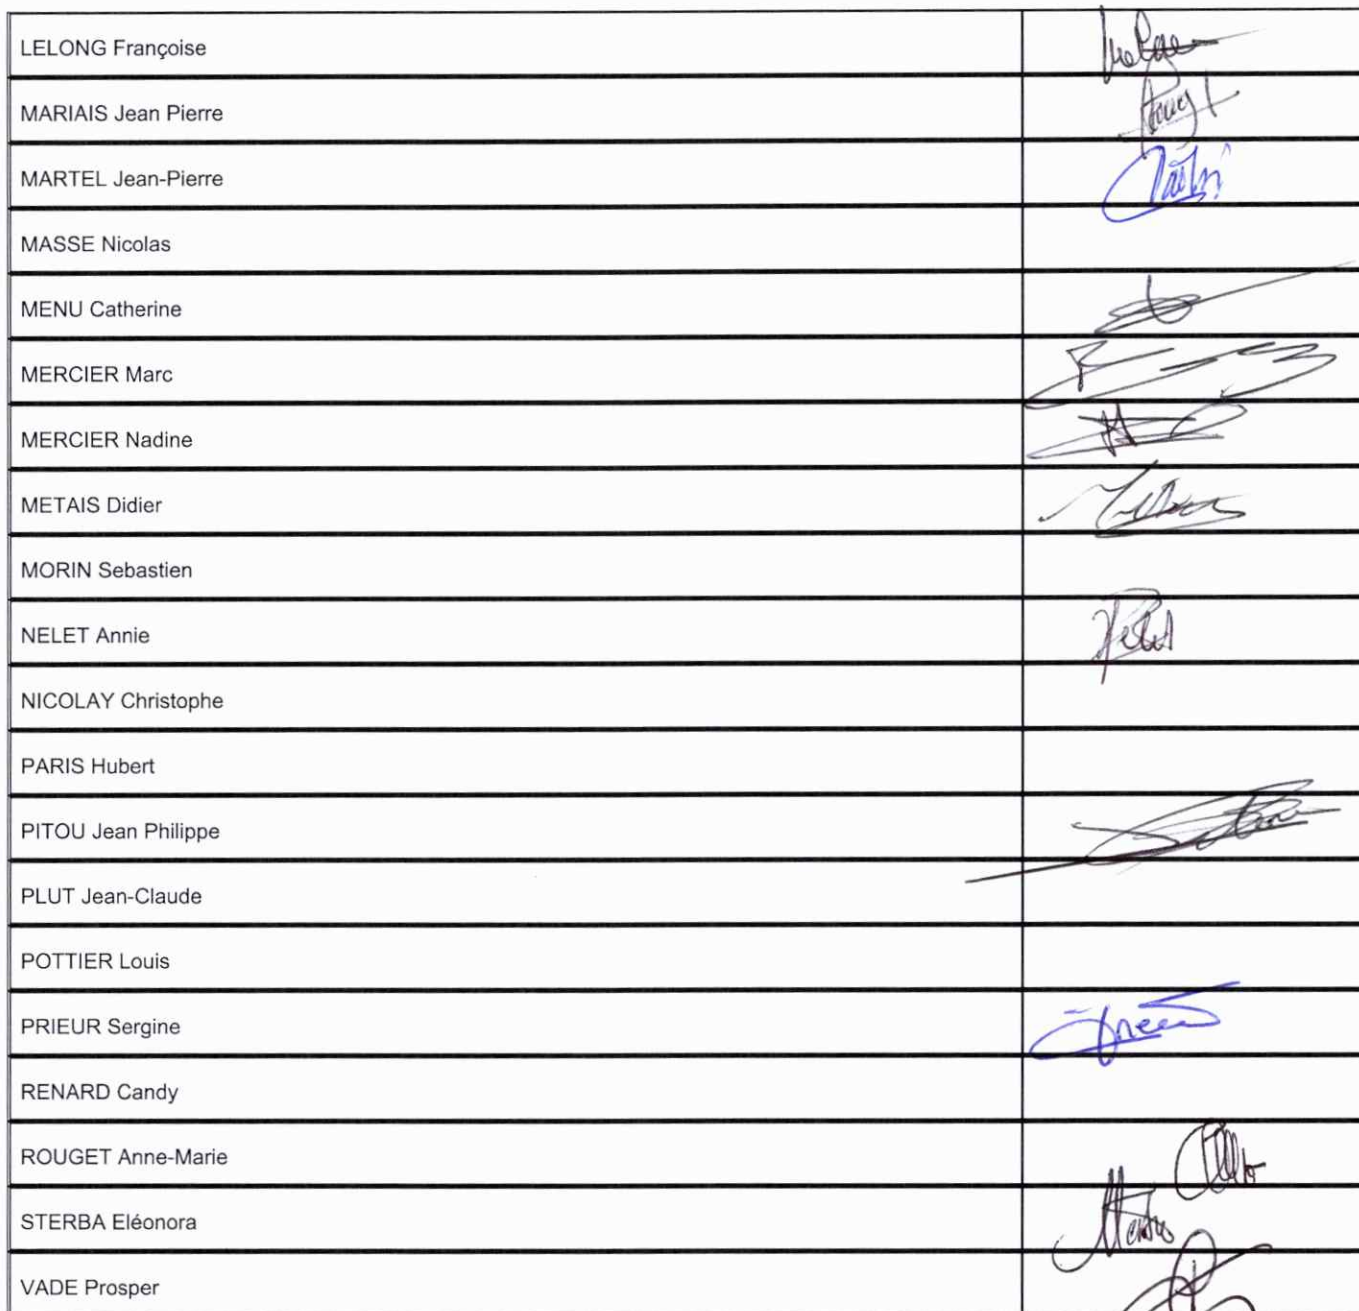 LELONG Françoise
MARIAIS Jean Pierre
MARTEL Jean-Pierre
MASSE Nicolas
MENU Catherine
MERCIER Marc
MERCIER Nadine
METAIS Didier
MORIN Sebastien
NELET Annie
NICOLAY Christophe
PARIS Hubert
PITOU Jean Philippe
PLUT Jean-Claude
POTTIER Louis
PRIEUR Sergine
RENARD Candy
ROUGET Anne-Marie
STERBA Eléonora
VADE Prosper